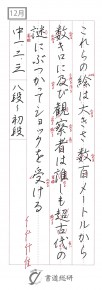 12月
これらの絵は大きさ数百メートルから
数キロに及び観察者は誰しも超古代の
謎にぶつかってショックを受ける
中一二三 八段~初段
書道総研